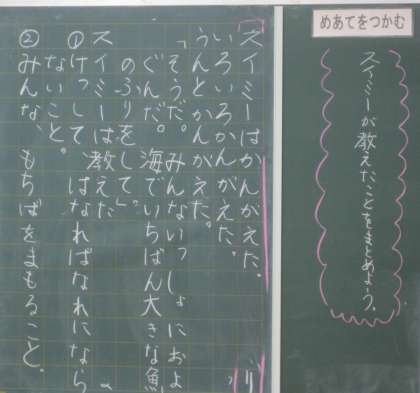 めあてをつかむ
スイミーが教えたことをまとめよう。
スイミーはかんがえた。
いろいろかんがえた。
うんとかんがえた。
「そうだ。みんないっしょにおよ
ぐんだ。海でいちばん大きな魚
のふりをして」
スイミーは教えた
①けっして、はなればなれになら
ないこと。
②みんな、もちばをまもること。